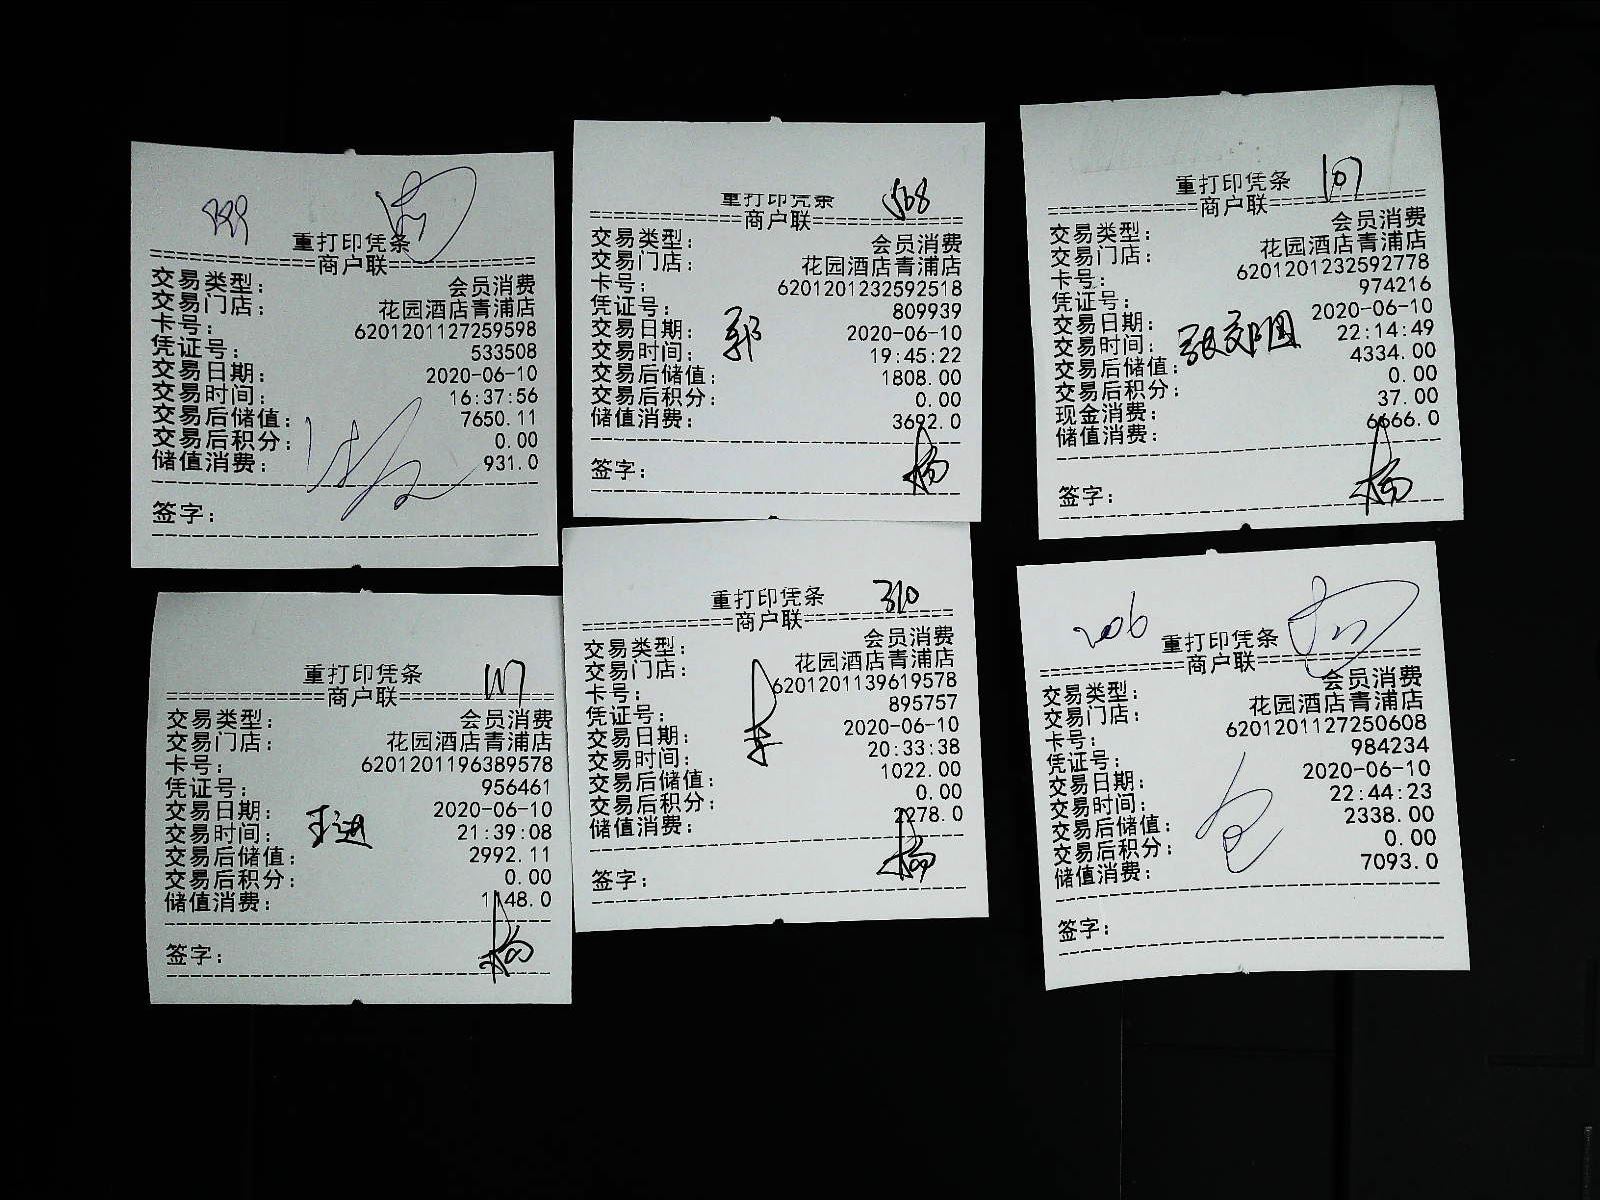 888
重打印凭条
==============商户联==============
交易类型: 会员消费
交易门店: 花园酒店青浦店
卡号: 6201201127259598
凭证号: 533508
交易日期: 2020-06-10
交易时间: 16:37:56
交易后储值: 7650.11
交易后积分: 0.00
储值消费: 931.0
签字:
重打印凭条 568
==============商户联==============
交易类型: 会员消费
交易门店: 花园酒店青浦店
卡号: 6201201232592518
凭证号: 809939
交易日期: 2020-06-10
郭
交易时间: 19:45:22
交易后储值: 1808.00
交易后积分: 0.00
储值消费: 3692.0
签字: 杨
重打印凭条 107
==============商户联==============
交易类型: 会员消费
交易门店: 花园酒店青浦店
卡号: 6201201232592778
凭证号: 974216
交易日期: 2020-06-10
交易时间: 22:14:49
交易后储值: 4334.00
交易后积分: 0.00
现金消费: 37.00
储值消费: 6666.0
签字: 杨
重打印凭条 107
==============商户联==============
交易类型: 会员消费
交易门店: 花园酒店青浦店
卡号: 6201201196389578
凭证号: 956461
交易日期: 2020-06-10
王进
交易时间: 21:39:08
交易后储值: 2992.11
交易后积分: 0.00
储值消费: 1148.0
签字: 杨
重打印凭条 310
==============商户联==============
交易类型: 会员消费
交易门店: 花园酒店青浦店
卡号: 6201201139619578
凭证号: 895757
交易日期: 2020-06-10
李
交易时间: 20:33:38
交易后储值: 1022.00
交易后积分: 0.00
储值消费: 2278.0
签字: 杨
206 重打印凭条
==============商户联==============
交易类型: 会员消费
交易门店: 花园酒店青浦店
卡号: 6201201127250608
凭证号: 984234
交易日期: 2020-06-10
交易时间: 22:44:23
交易后储值: 2338.00
交易后积分: 0.00
储值消费: 7093.0
签字: